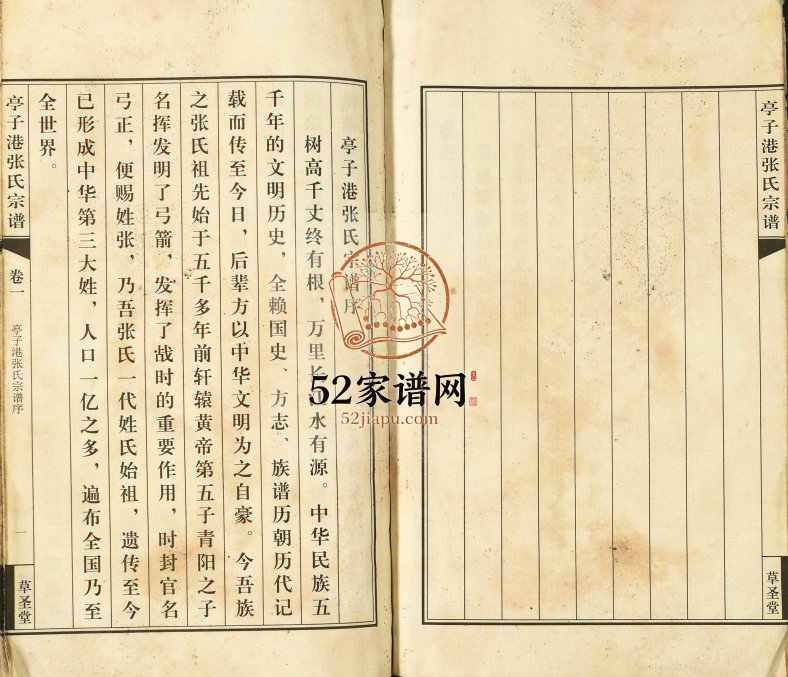 亭子港张氏宗谱
草圣堂
亭子港张氏宗谱序
树高千丈终有根，万里长江水有源。中华民族五
千年的文明历史，全赖国史、方志、族谱历朝历代记
载而传至今日，后辈方以中华文明为之自豪。今吾族
之张氏祖先始于五千多年前轩辕黄帝第五子青阳之子
名挥发明了弓箭，发挥了战时的重要作用，时封官名
弓正，便赐姓张，乃吾张氏一代姓氏始祖，遗传至今
已形成中华第三大姓，人口一亿之多，遍布全国乃至
全世界。
亭子港张氏宗谱
卷一
亭子港张氏宗谱序
一
草圣堂
52家谱网
52jiapu.com